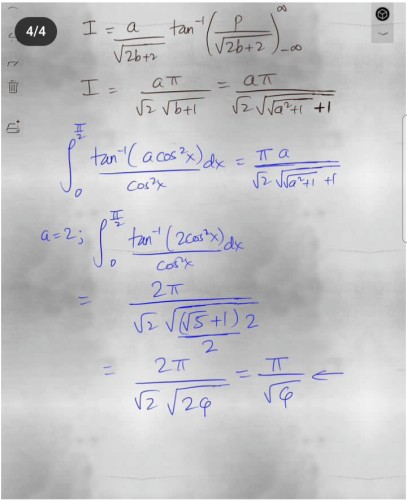 4/4
I = a/√(2b+2) tan⁻¹(p/√(2b+2))^∞_-∞
I = aπ/(√2 √(b+1)) = aπ/(√2 √(√(a²+1) +1))
∫_0^(π/2) tan⁻¹(a cos²x)/cos²x dx = π a/(√2 √(√(a²+1) +1))
a=2; ∫_0^(π/2) tan⁻¹(2cos²x)/cos²x dx
= 2π/(√2 √((√5+1)2/2))
= 2π/(√2 √(2φ)) = π/√φ ←